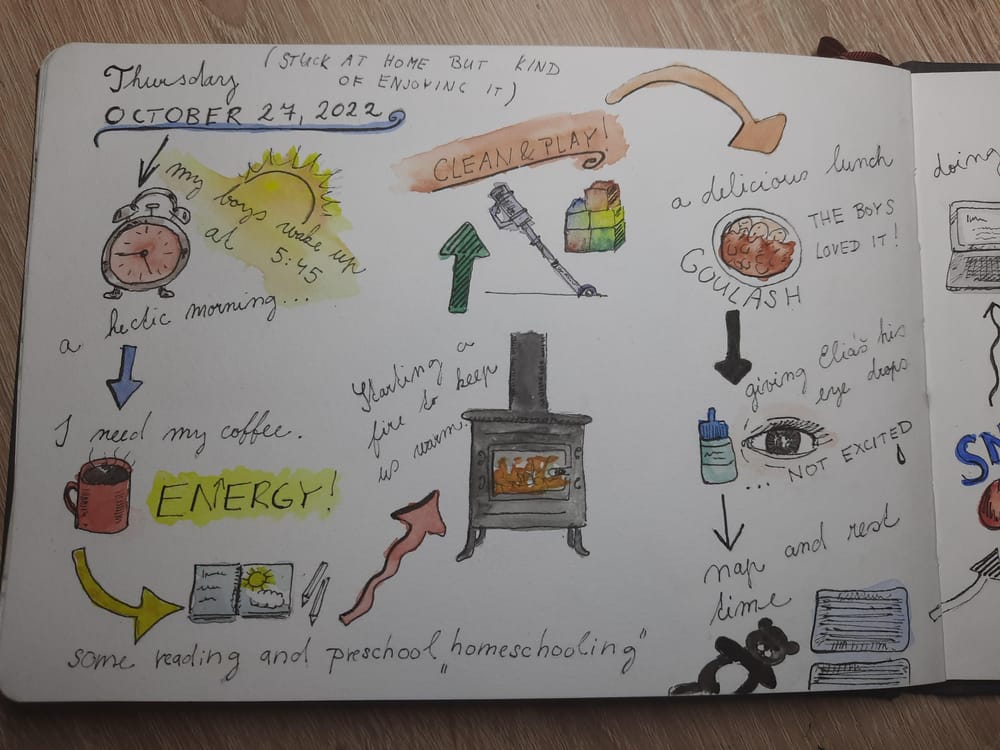 Thursday
(STUCK AT HOME BUT KIND
OF ENJOYING IT)
OCTOBER 27, 2022
my
boys wake up
at
5:45
a hectic morning...
I need my coffee.
ENERGY!
some reading and preschool „homeschooling"
Starting a
fire to keep
us warm.
CLEAN & PLAY!
a delicious lunch
THE BOYS
LOVED IT!
GOULASH
giving Eliáš his
eye drops
... NOT EXCITED
nap and rest
time
doing
SN